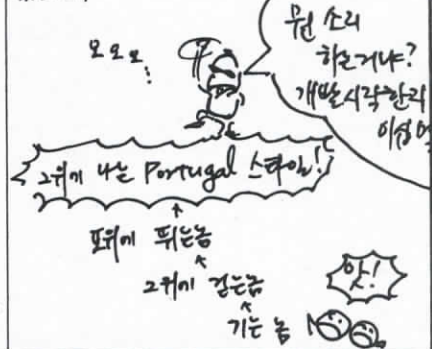 오오오...
뭔 소리
하는거냐?
개발시작한지
이삼
그위에 나는 Portugal 스타일!
또위에 뛰는놈
그위에 걷는놈
기는 놈
앗!